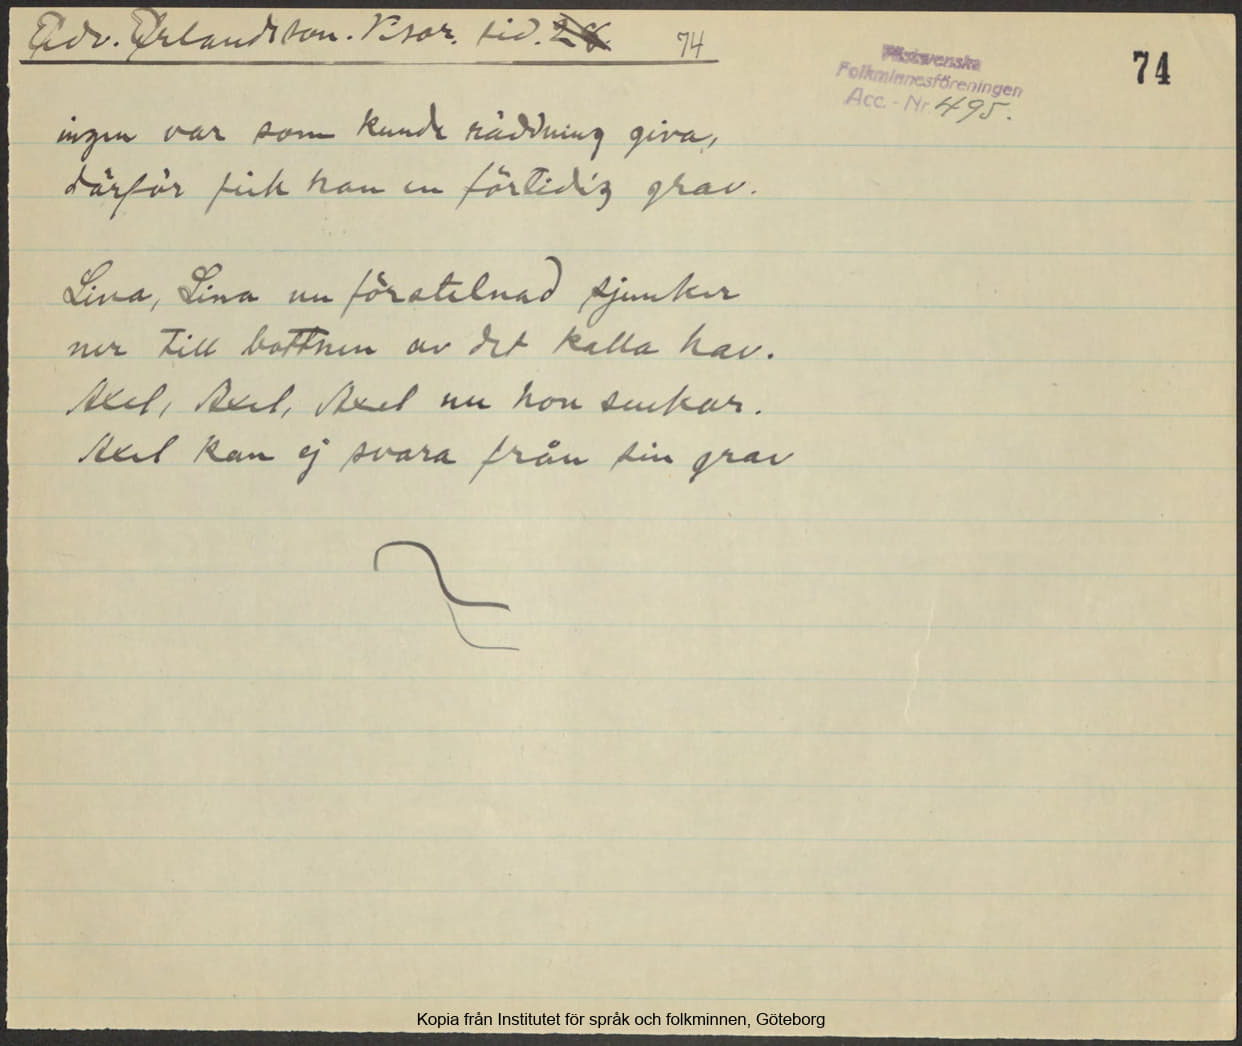 Edv. Erlandsson. Visor. sid. 74
74
Västsvenska
Folkminnesföreningen
Acc. - Nr. 495.
ingen var som kunde räddning giva,
därför fick han en förtidig grav.
Lina, Lina nu förstelnad sjunker
ner till bottnen av det kalla hav.
Axel, Axel, Axel nu hon suckar.
Axel kan ej svara från sin grav
Kopia från Institutet för språk och folkminnen, Göteborg